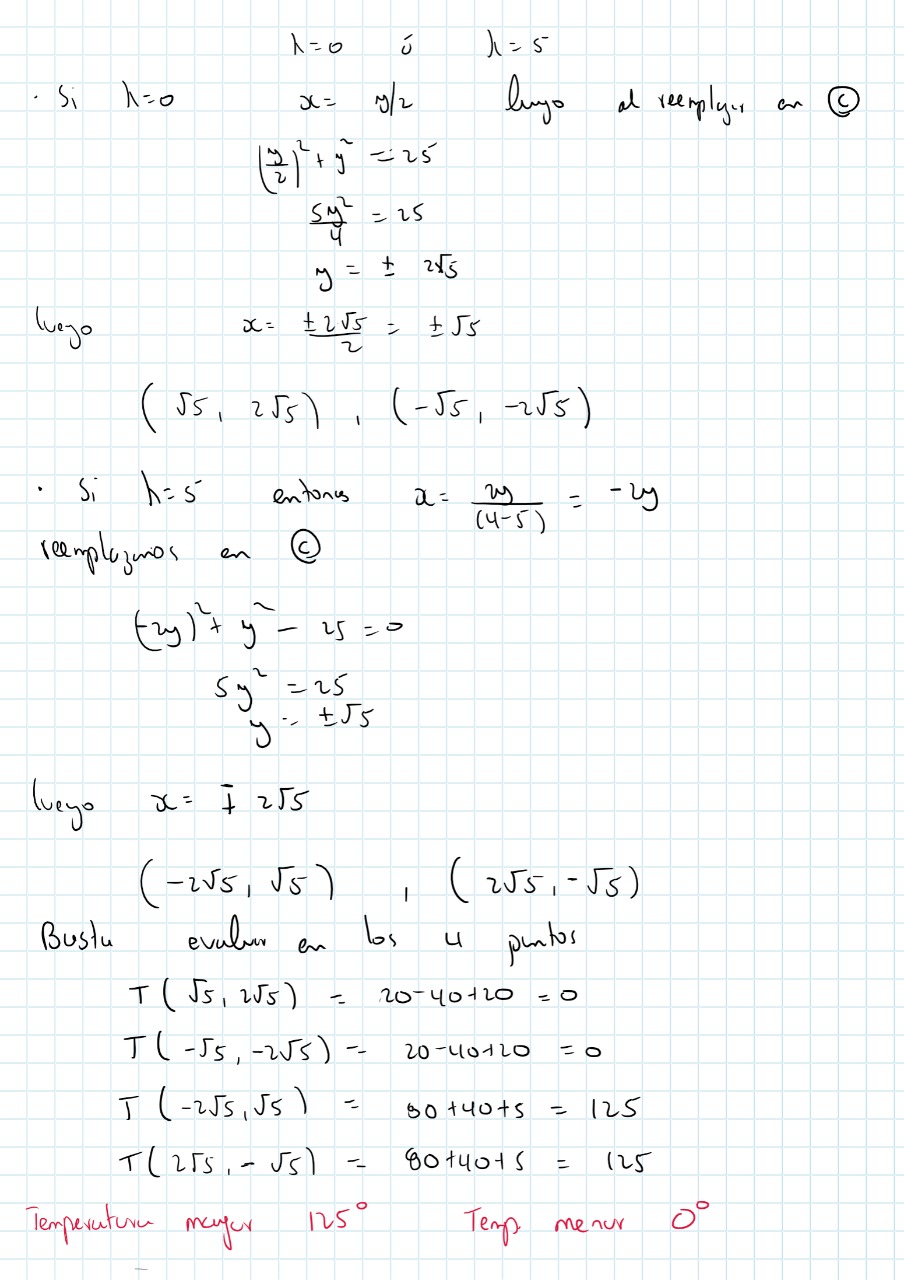 λ=0 ó λ=5
· Si λ=0 x= y/2 luego al reemplazar en Ⓒ
(y/2)² + y² = 25
5y²/4 = 25
y = ± 2√5
luego x= ±2√5/2 = ±√5
(√5, 2√5), (-√5, -2√5)
· Si λ=5 entonces x= 2y/(4-5) = -2y
reemplazamos en Ⓒ
(-2y)² + y² - 25 = 0
5y² = 25
y = ±√5
luego x= ∓ 2√5
(-2√5, √5), (2√5, -√5)
Basta evaluar en los 4 puntos
T(√5, 2√5) = 20-40+20 = 0
T(-√5, -2√5) = 20-40+20 = 0
T(-2√5, √5) = 80+40+5 = 125
T(2√5, -√5) = 80+40+5 = 125
Temperatura mayor 125° Temp menor 0°